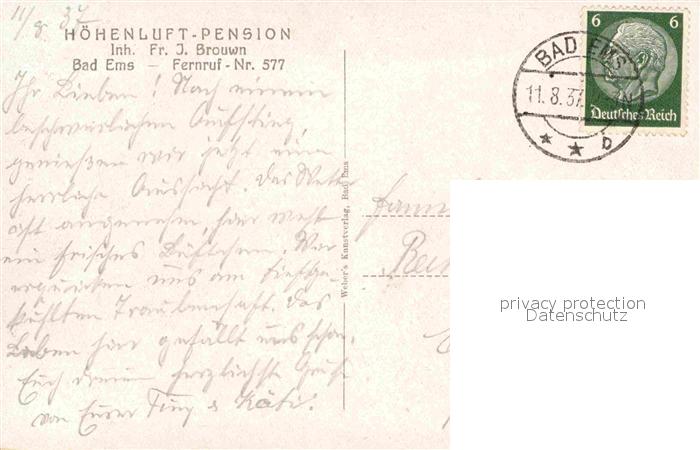 11/8. 37.
HÖHENLUFT-PENSION
Inh. Fr. J. Brouwn
Bad Ems — Fernruf-Nr. 577
Ihr Lieben! Nach einem
beschwerlichen Aufstieg,
genießen wir jetzt eine
herrliche Aussicht. Das Wetter
ist angenehm, hier weht
ein frisches Lüftchen. Wir
erquicken uns am
kühlten Traubensaft. Das
Leben hier gefällt uns schon.
Euch herzlichste Grüße
von Eurer & Käti.
Weber's Kunstverlag, Bad Ems
6 6
Deutsches Reich
BAD EMS
11.8.37
b
privacy protection
Datenschutz